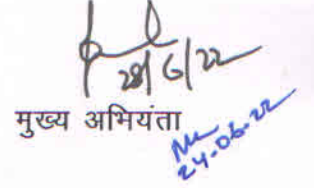 28/6/22
मुख्य अभियंता
24.06.22